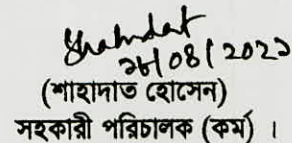 Shahadat
26/08/2022
(শাহাদাত হোসেন)
সহকারী পরিচালক (কর্ম) ।